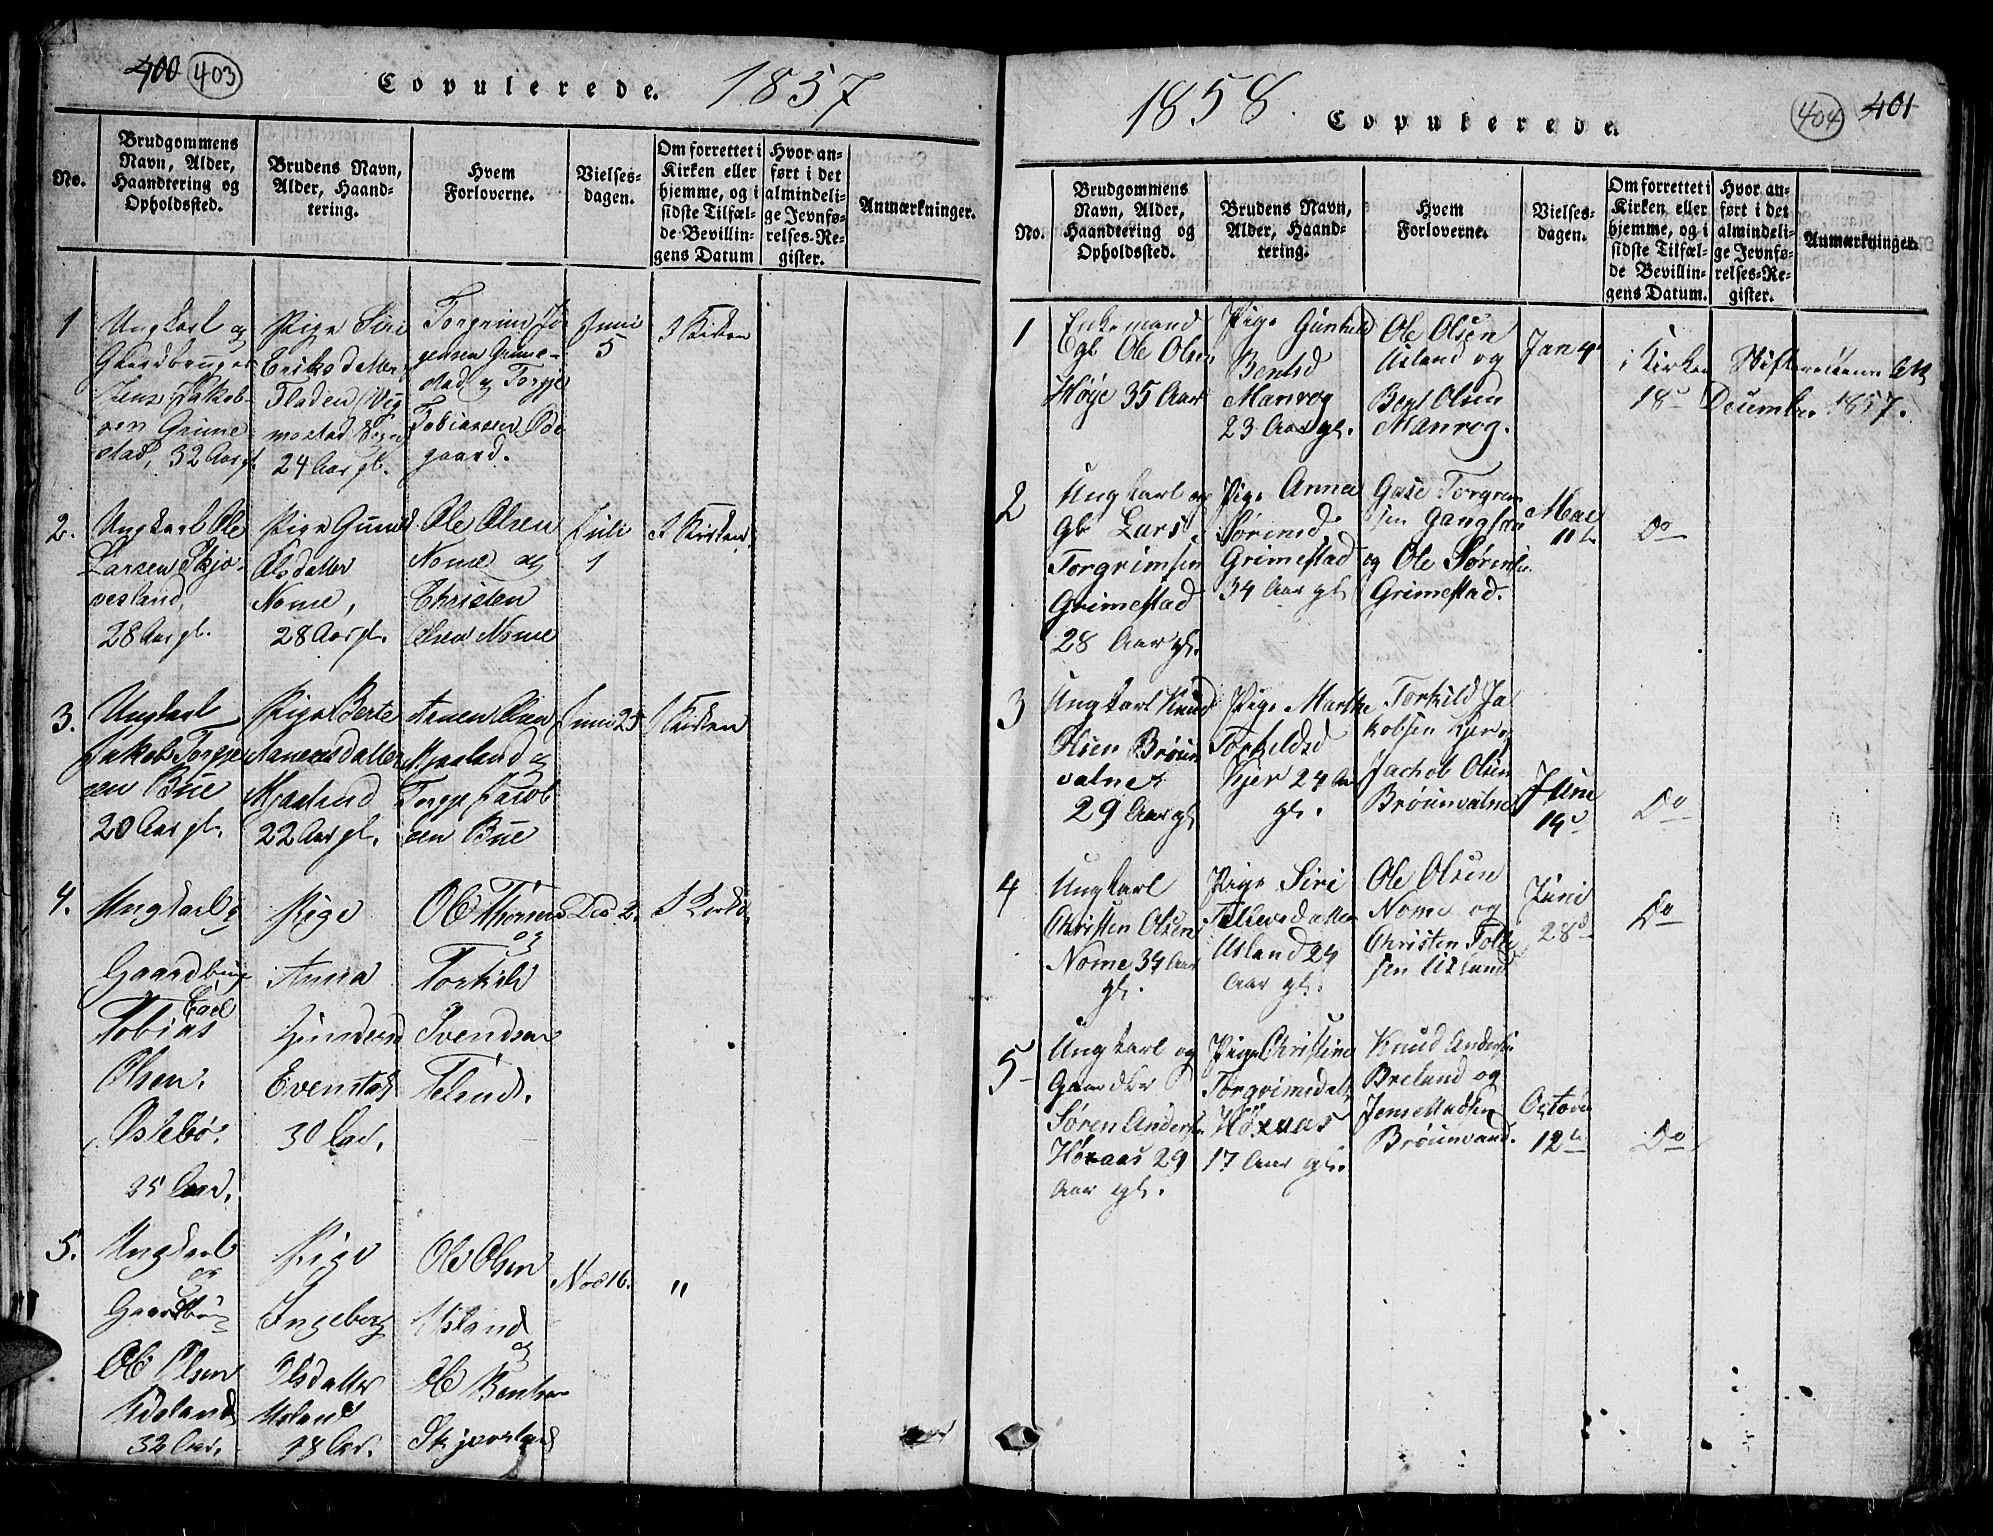 400 403
Copulerede. 1857
No.
Brudgommens
Navn, Alder,
Haandtering og
Opholdssted.
Brudens Navn,
Alder, Haand-
tering.
Hvem
Forloverne.
Vielses-
dagen.
Om forrettet i
Kirken eller
hjemme, og i
sidste Tilfæl-
de Bevillin-
gens Datum
Hvor an-
ført i det
almindeli-
ge Jevnfø-
relses-Re-
gister.
Anmærkninger.
1
Ungkarl og
Gaardbruger
Jens Jakob-
sen Grime-
stad, 32 Aar gl.
Pige Siri
Eriksdatter
Fladen Vig
mostad Sogn
24 Aar gl.
Torgrim Jør
gensen Grime-
stad og Torgje
Tobiassen Øde
gaard.
Juni
5
I Kirken
2.
Ungkarl Ole
Larsen Skjø-
vesland,
28 Aar gl.
Pige Gunild
Olsdatter
Nome,
28 Aar gl.
Ole Olsen
Nome og
Christen
Olsen Nome
Juli
1
I Kirken
3.
Ungkarl
Jakob Torgje
sen Bue
20 Aar gl.
Pige Berte
Aanensdatter
Mjaaland
22 Aar gl.
Aanen Olsen
Mjaaland og
Torgje Jacob
sen Bue
Juni 25
I Kirken
4.
Ungkarl og
Gaardbrug
Emil
Tobias
Olsen
Oslebø.
25 Aar.
Pige
Anna
Gundersd
Evenstad
30 Aar.
Ole Thomes
og
Torkild
Svendsen
Feland.
Dec 2.
I Kirken
5.
Ungkarl
og
Gaardbr
Ole Olsen
Udland
32 Aar.
Pige
Ingeborg
Olsdatter
Usland
18 Aar.
Ole Olsen
Usland
og
Ole Bentsen
Skjævesland
Nov 16.
"
1858.
Copulerede.
404 401
No.
Brudgommens
Navn, Alder,
Haandtering og
Opholdssted.
Brudens Navn,
Alder, Haand-
tering.
Hvem
Forloverne.
Vielses-
dagen.
Om forrettet i
Kirken eller
hjemme, og i
sidste Tilfæl-
de Bevillin-
gens Datum.
Hvor an-
ført i det
almindeli-
ge Jevnfø-
relses-Re-
gister.
Anmærkninger.
1
Enkemand
Ggb Ole Olsen
Høje 35 Aar
Pige Gunhild
Bentsd
Manrog
23 Aar gl.
Ole Olsen
Usland og
Bent Olsen
Manrog.
Jan 4de
i Kirken Skifteattest af
18de December 1857.
2
Ungkarl og
Gb Lars
Torgrimsen
Grimestad
28 Aar gl.
Pige Anna
Sørensd
Grimestad
34 Aar gl.
Gase Torgrim
sen
og Ole Sørensen
Grimestad.
Mai
11te
Do
3
Ungkarl Knud
Olsen Brøun
vatne
29 Aar gl.
Pige Marthe
Torkeldsd
Kjær 24 Aar
gl.
Torkild Ja
kobsen Kjær og
Jachob Olsen
Brøunvatne
Juni
14de
Do
4
Ungkarl
Christen Olsen
Nome 34 Aar
gl.
Pige Siri
Tellevsdatter
Usland 24
Aar gl.
Ole Olsen
Nome og
Christen Tolle
sen Usland
Juni
28de
Do
5
Ungkarl og
Gaardbr
Søren Anders.
Høxaas 29
Aar gl.
Pige Christine
Torgrimsdatt
Høxaas
17 Aar gl.
Knud Anders.
Breland og
Jens Madsen
Brøunvand.
October
12te
Do